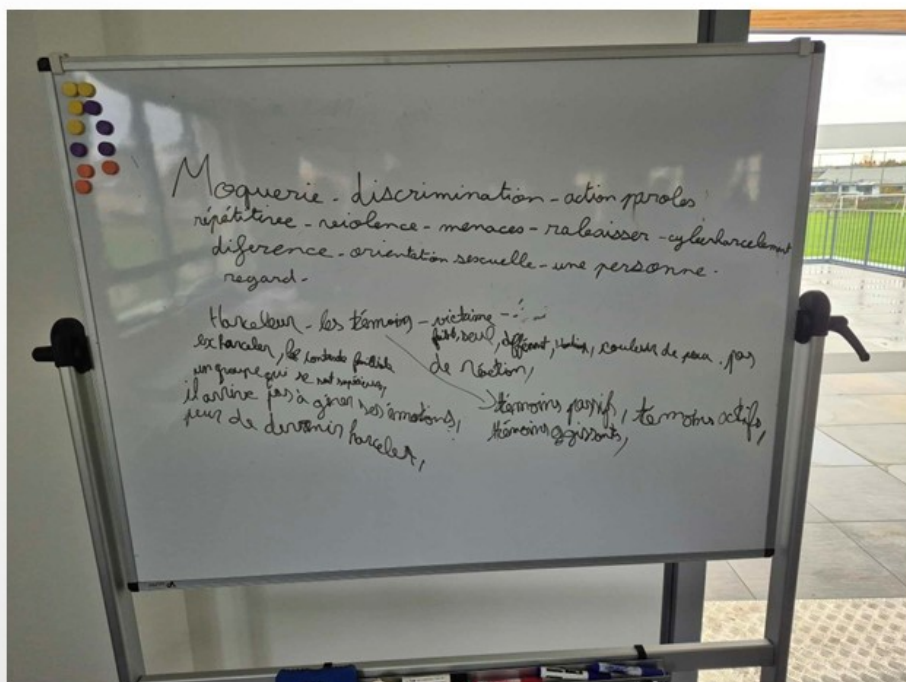 Moquerie - discrimination - action paroles
répétitive - violence - menaces - rabaisser - cyberharcelement
diference - orientation sexuelle - une personne -
regard -
Harceleur - les témoins - victime -
faible, seul, différent, couleur de peau, pas
de réaction,
ex harceler, le contexte familiale
un groupe qui se sent supérieur,
il arrive pas à gérer ses émotions,
peur de devenir harceler,
témoins passifs, temoins actifs,
témoins agissants,